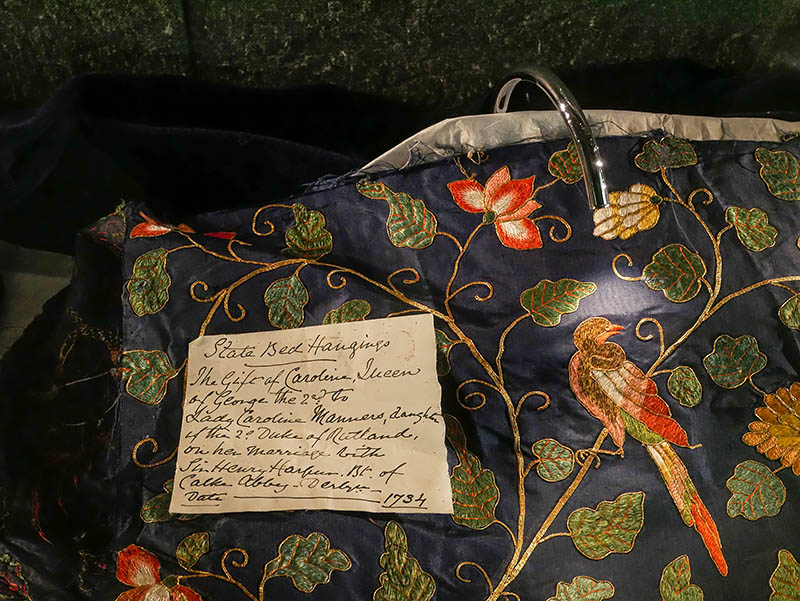 State Bed Hangings
The Gift of Caroline, Queen
of George the 2d. to
Lady Caroline Manners, daughter
of the 2d Duke of Rutland,
on her marriage with
Sir Henry Harpur. Bt. of
Calke Abbey. Derby.
Date 1734